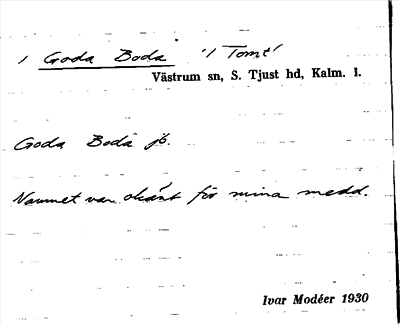 1 Goda Boda '1 Tomt'
Västrum sn, S. Tjust hd, Kalm. l.
Goda Boda jb.
Namnet var okänt för mina medd.
Ivar Modéer 1930